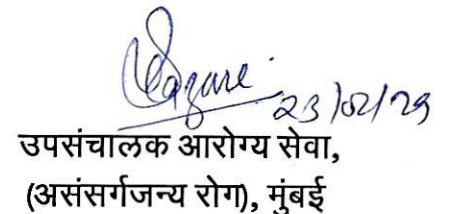 23/02/23
उपसंचालक आरोग्य सेवा,
(असंसर्गजन्य रोग), मुंबई